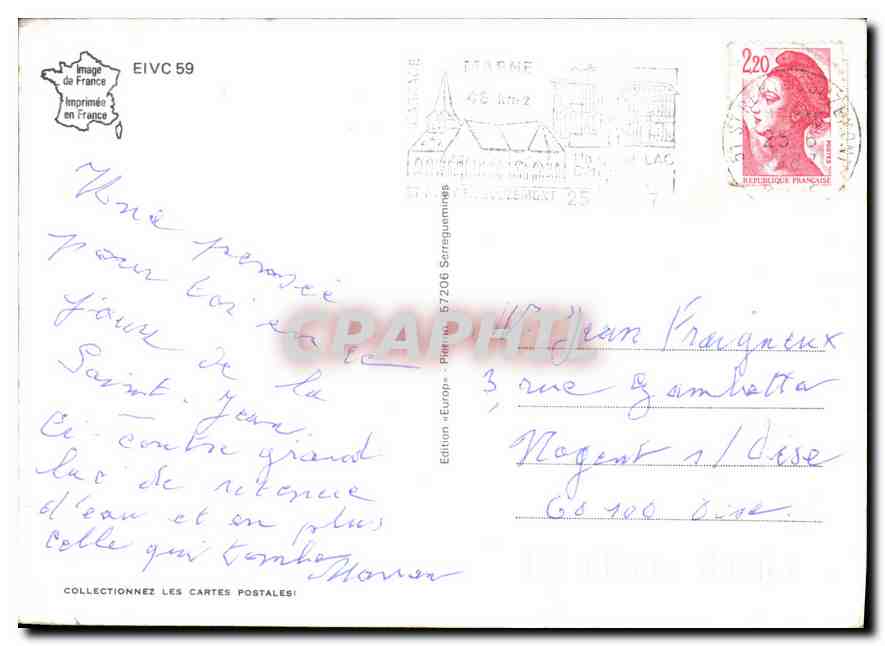 Image
de France
Imprimée
en France
EIVC 59
MARNE
48 km2
LAC
25
2,20
POSTES
REPUBLIQUE FRANÇAISE
Une pensée
pour toi en ce
jour de la
Saint-Jean.
Ci-contre grand
lac de retenue
d'eau et en plus
celle qui tombe
COLLECTIONNEZ LES CARTES POSTALES!
Edition «Europ» 57206 Sarreguemines
CPAPHIL
Jean Fraigneux
3, rue Gambetta
Nogent s/Oise
60100 Oise.